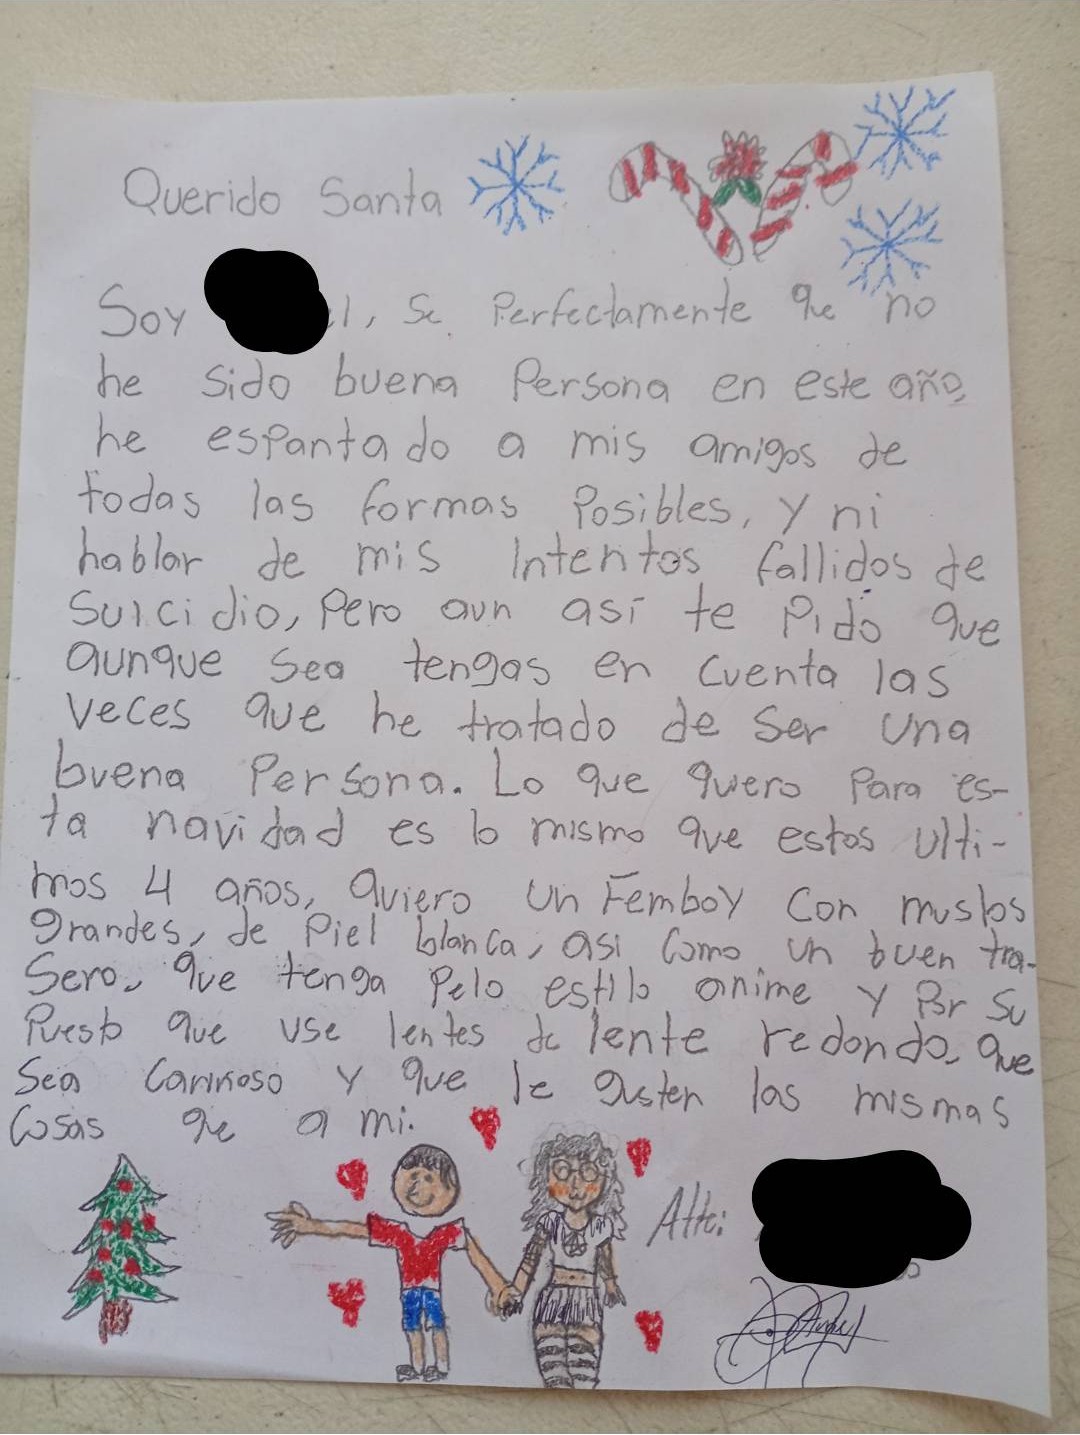 Querido Santa
Soy l, Se Perfectamente que no
he sido buena Persona en este año,
he espantado a mis amigos de
todas las formas Posibles, y ni
hablar de mis Intentos fallidos de
Suicidio, Pero aun así te Pido que
aunque sea tengas en cuenta las
veces que he tratado de ser una
buena Persona. Lo que quero Para es-
ta navidad es lo mismo que estos ulti-
mos 4 años, quiero un Femboy con muslos
grandes, de Piel blanca, asi como un buen tra-
Sero, que tenga Pelo estilo anime y Por Su
Puesto que use lentes de lente redondo, que
Sea Cariñoso y que le gusten las mismas
Cosas que a mi.
Atte: